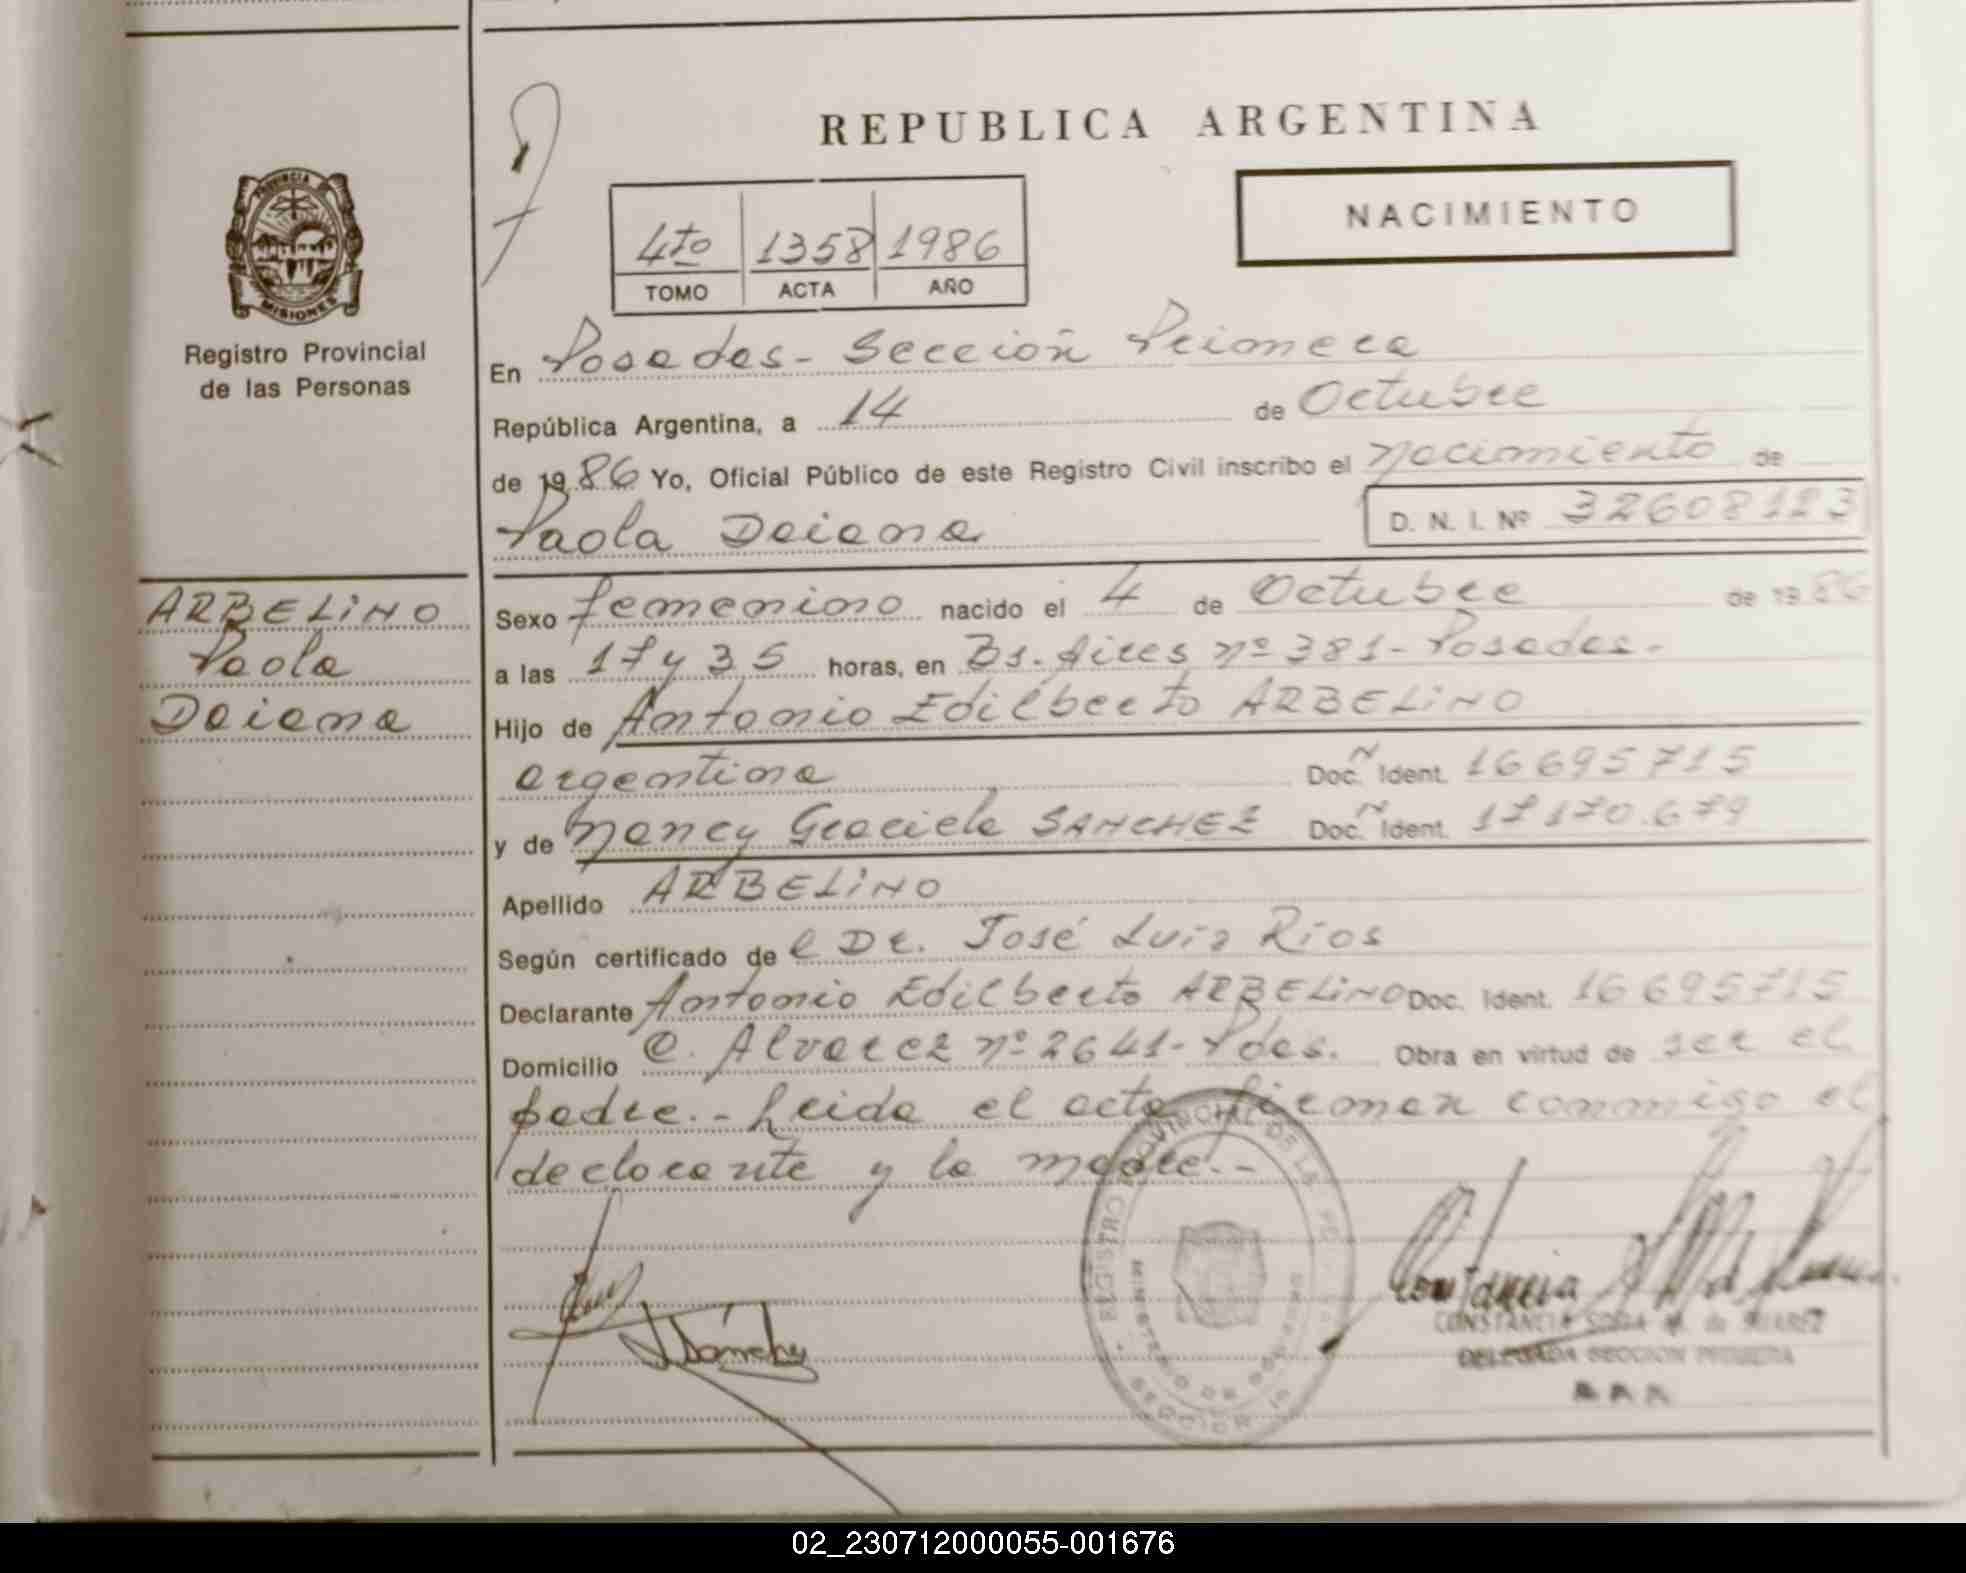 REPUBLICA ARGENTINA
NACIMIENTO
4to 1358 1986
TOMO ACTA AÑO
PROVINCIA DE
MISIONES
Registro Provincial
de las Personas
En Posadas - Sección Primera
República Argentina, a 14 de Octubre
de 1986 Yo, Oficial Público de este Registro Civil inscribo el nacimiento de
Paola Daiana D. N. I. Nº 32608123
ARBELINO
Paola
Daiana
Sexo femenino nacido el 4 de Octubre de 1986
a las 17 y 35 horas, en Bs. Aires nº 381 - Posadas.-
Hijo de Antonio Edilberto ARBELINO
argentina Doc. Ident. 16695715
y de Nancy Graciela SANCHEZ Doc. Ident. 17170.679
Apellido ARBELINO
Según certificado de l Dr. José Luis Ríos
Declarante Antonio Edilberto ARBELINO Doc. Ident. 16695715
Domicilio C. Alvarez nº 2641 - Pdas. Obra en virtud de ser el
padre.- Leida el acta firman conmigo el
declarante y la madre.-
REGISTRO PROVINCIAL DE LAS
MINISTERIO DE GOBIERNO
SECCION 1a
Sánchez
Constancia
CONSTANCIA SOSA M. de SUAREZ
DELEGADA SECCION PRIMERA
02_230712000055-001676